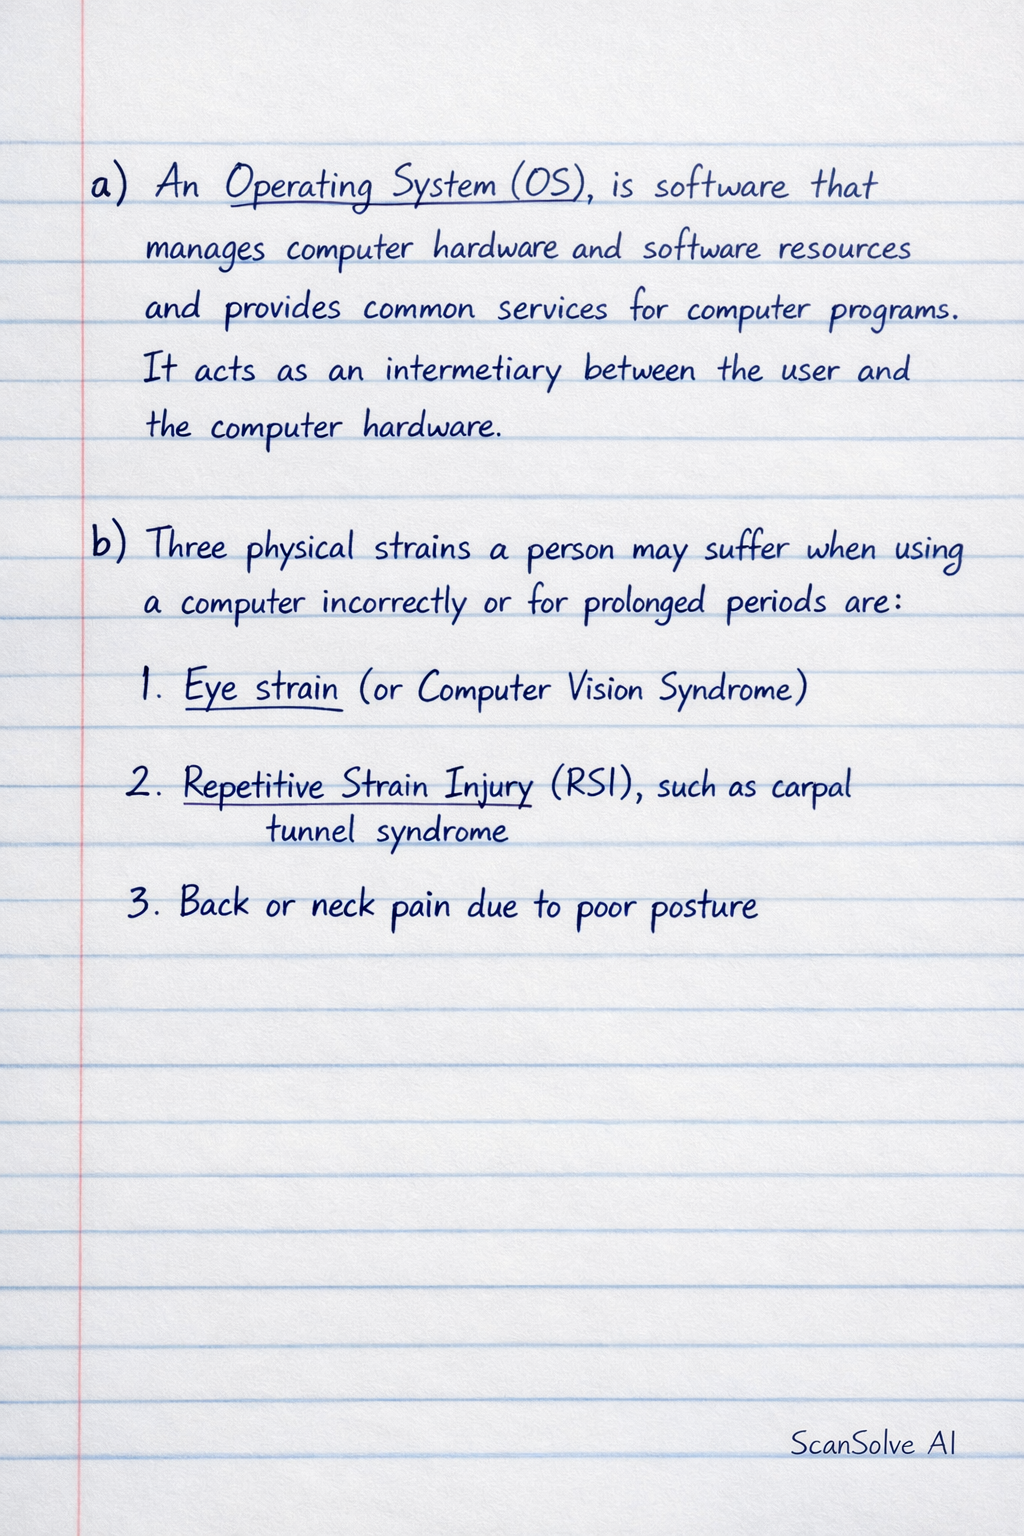 a) An Operating System (OS), is software that
manages computer hardware and software resources
and provides common services for computer programs.
It acts as an intermetiary between the user and
the computer hardware.
b) Three physical strains a person may suffer when using
a computer incorrectly or for prolonged periods are:
1. Eye strain (or Computer Vision Syndrome)
2. Repetitive Strain Injury (RSI), such as carpal
tunnel syndrome
3. Back or neck pain due to poor posture
ScanSolve AI